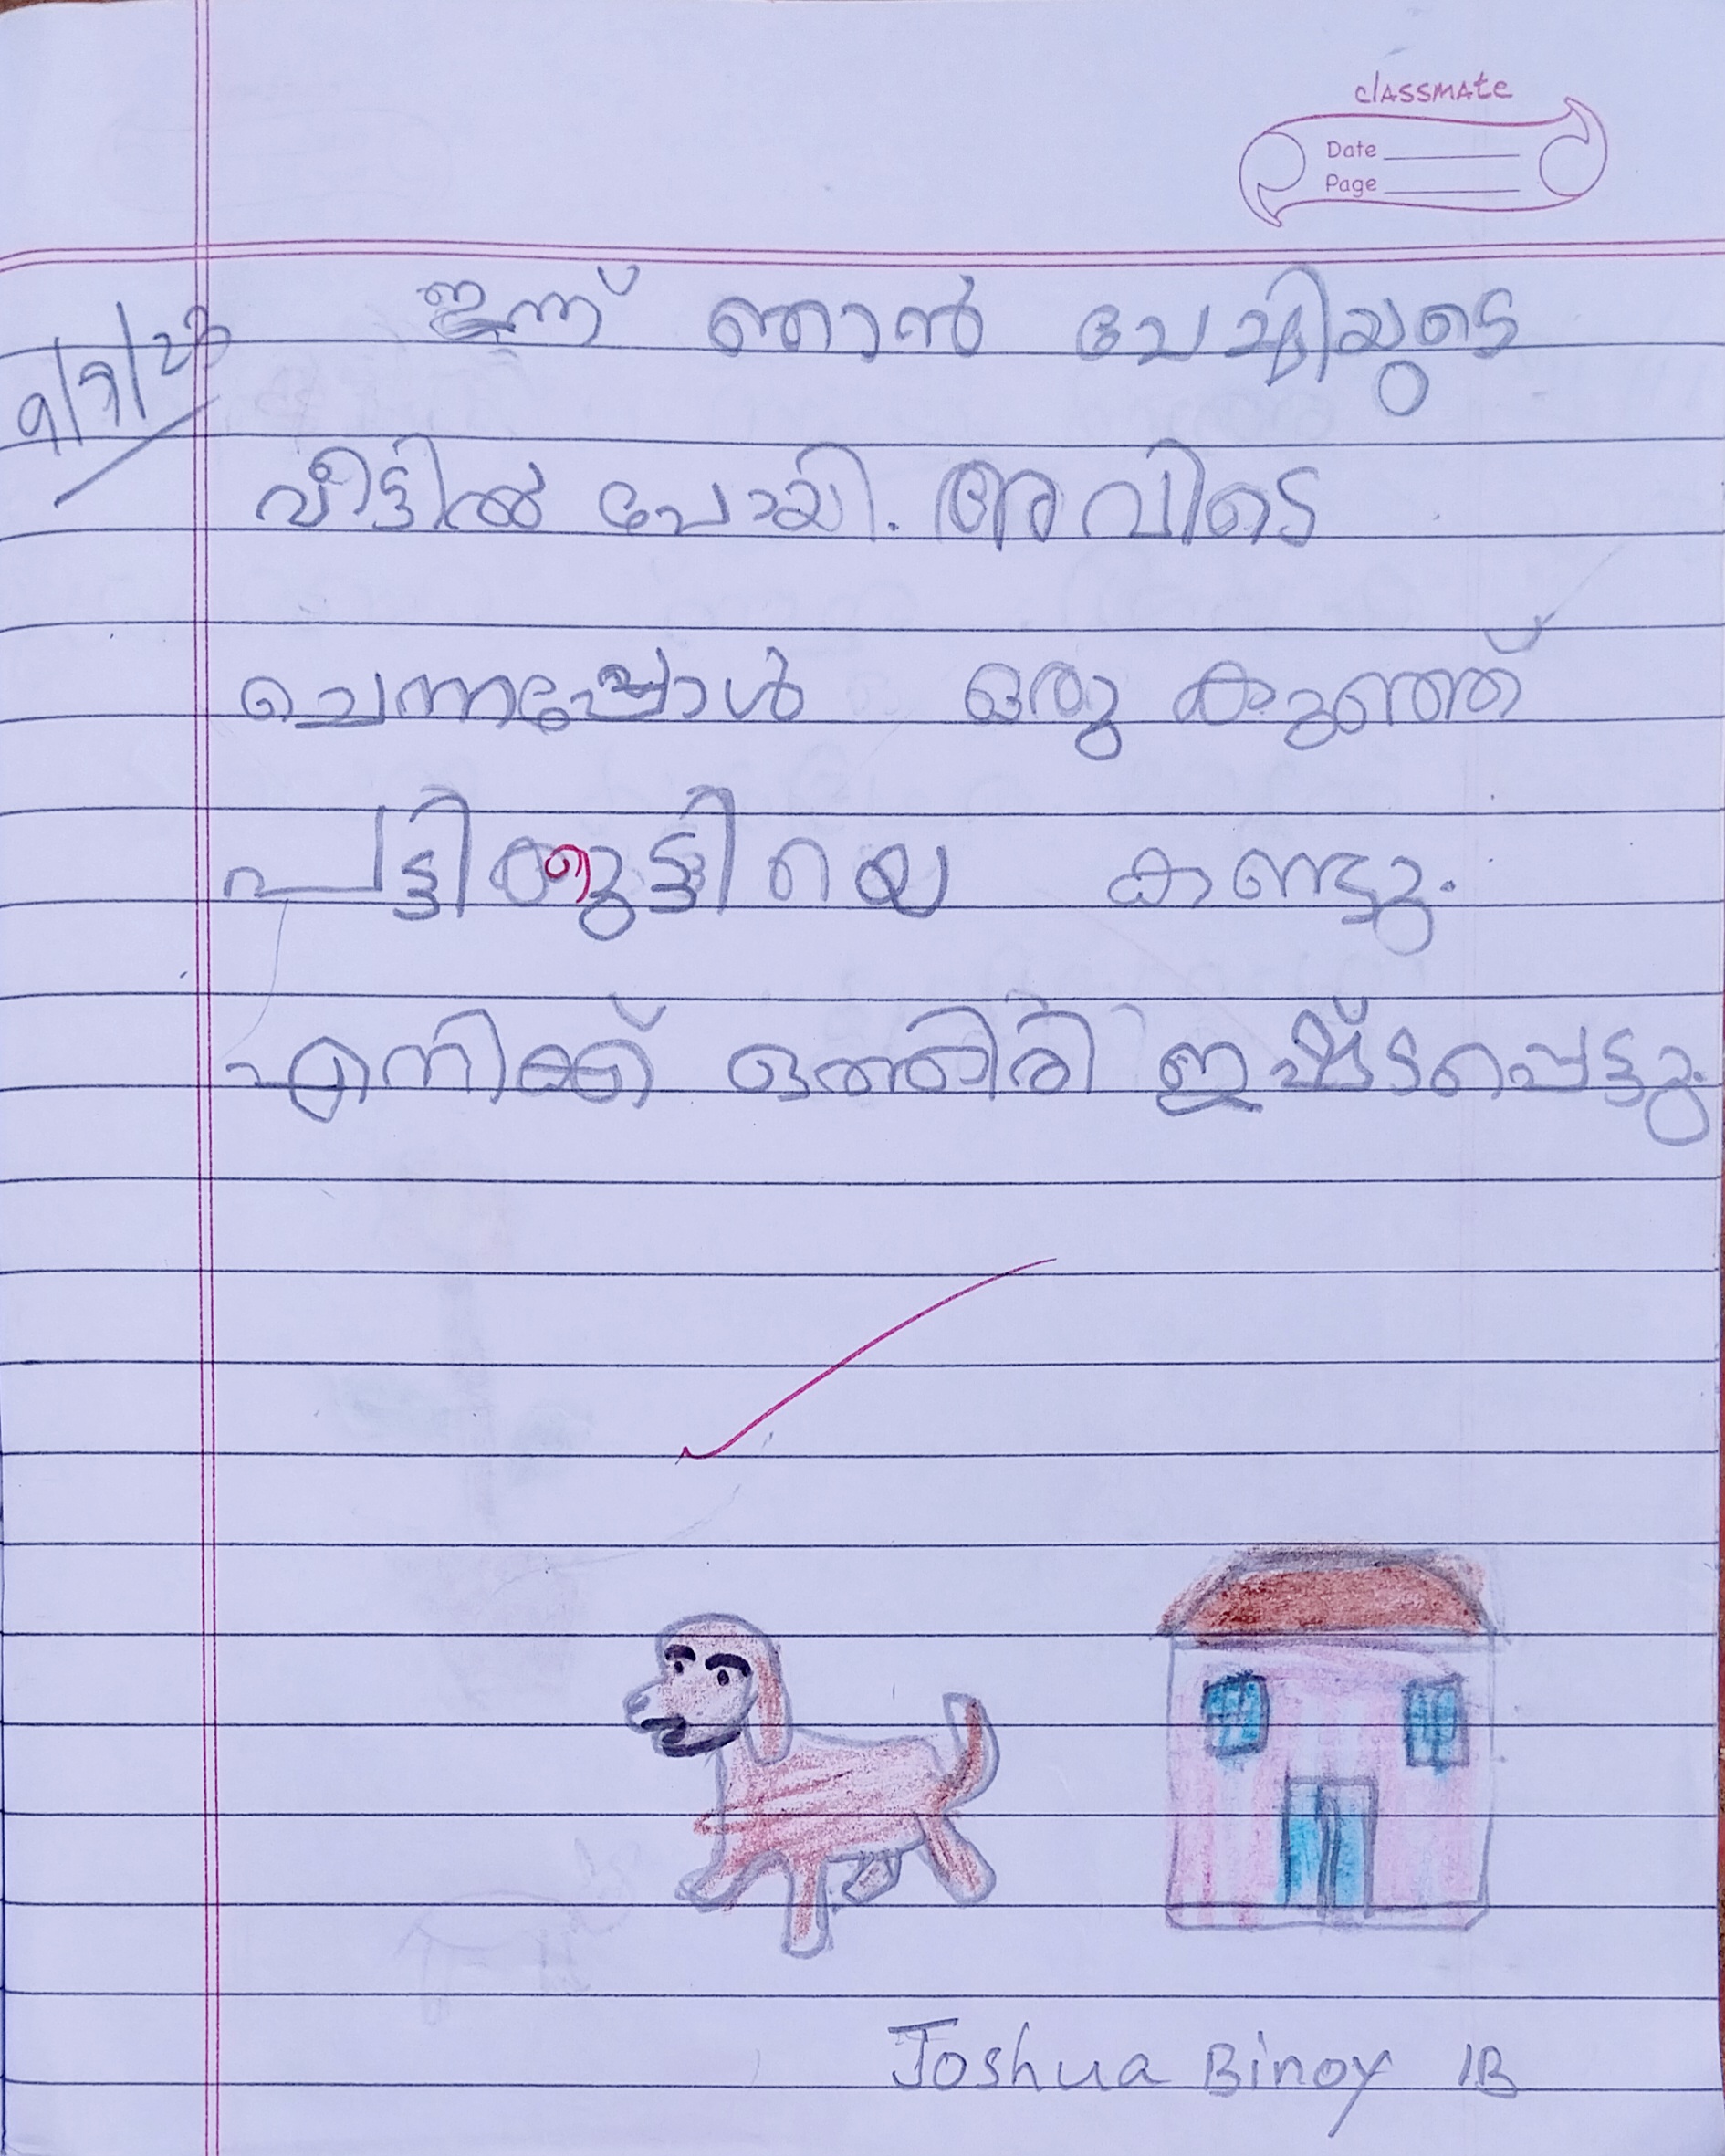 classmate
Date
Page
9/7/23
ഇന്ന് ഞാൻ ചേച്ചിയുടെ
വീട്ടിൽ പോയി. അവിടെ
ചെന്നപ്പോൾ ഒരു കുഞ്ഞ്
പട്ടിക്കുട്ടിയെ കണ്ടു.
എനിക്ക് ഒത്തിരി ഇഷ്ടപ്പെട്ടു.
Joshua Binoy 1B